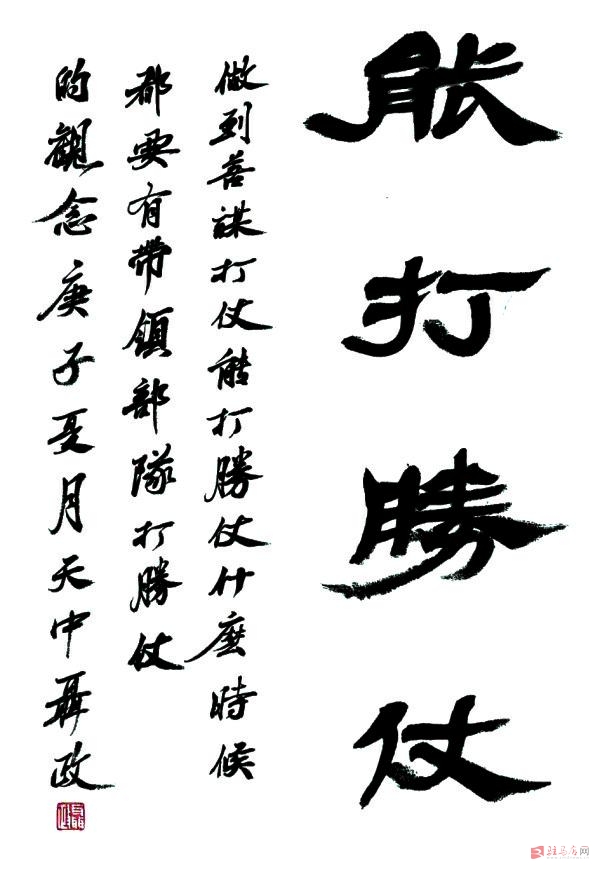 能打勝仗
做到善謀打仗能打勝仗什麼時候
都要有帶領部隊打勝仗
的觀念庚子夏月天中聶政
驻马店网